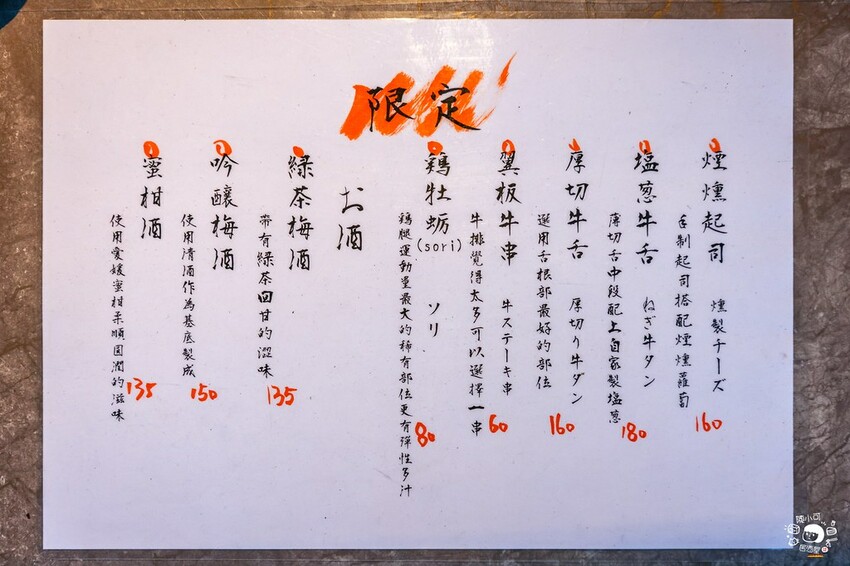 限定
煙燻起司 燻製チーズ
手制起司搭配煙燻蘿蔔
160
塩蔥牛舌 ねぎ牛タン
薄切舌中段配上自家製塩蔥
180
厚切牛舌 厚切り牛ダン
選用舌根部最好的部位
160
翼板牛串 牛ステーキ串
牛排覺得太多可以選擇一串
60
鶏牡蛎(sori) ソリ
鶏腿運動量最大的稀有部位更有弾性多汁
80
お酒
緑茶梅酒
帶有綠茶回甘的澀味
135
吟釀梅酒
使用清酒作為基底製成
150
蜜柑酒
使用愛媛蜜柑柔順圓潤的滋味
135
陳小可